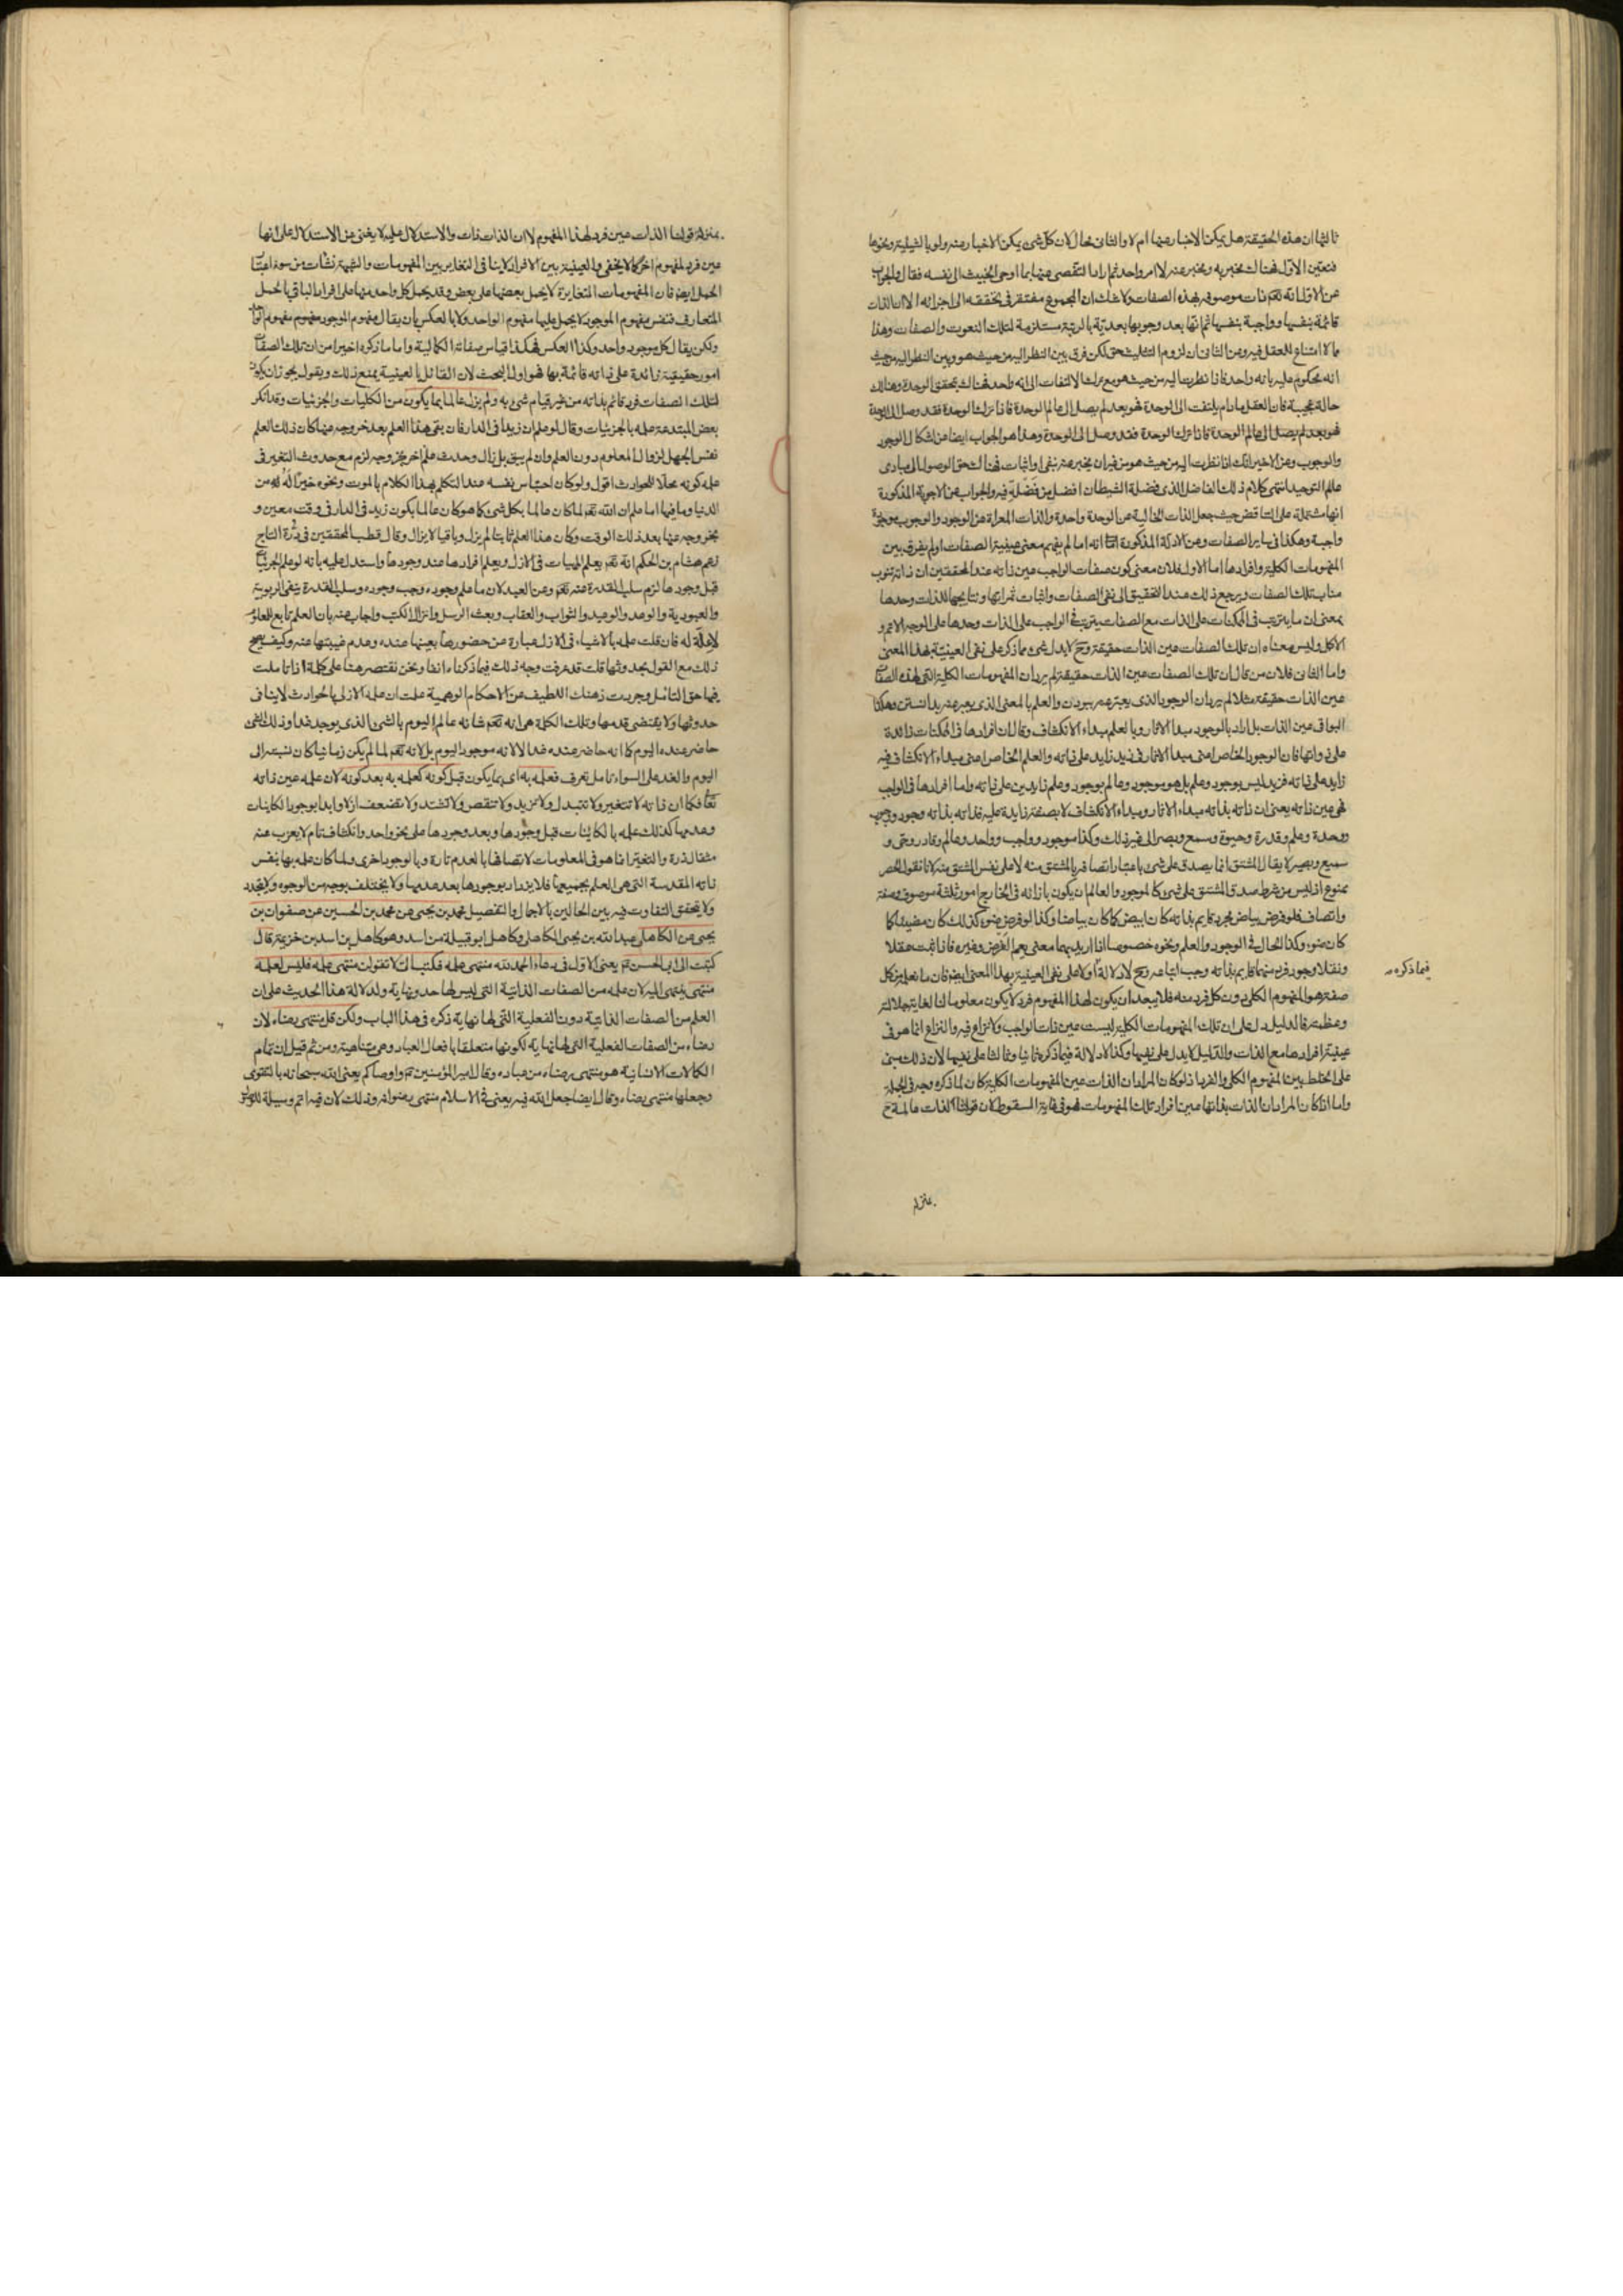 ثالثها ان هذه الحقيقة هل يمكن الاخبار عنها ام لا والثانى محال لان كل شىء يمكن الاخبار عنه ولو بالشيئية ونحوها
فتعين الاول فهناك مخبر به ومخبر عنه لا امر واحد ثم اراد التقصى عنها بما اوحى الخبيث الى نفسه فقال والجواب
عن الاول انه تعالى ذات موصوفة بهذه الصفات ولا شك ان المجموع مفتقر فى تحققه الى اجزائه الا ان الذات
قائمة بنفسها وواجبة بنفسها ثم انها بعد وجوبها بعدية بالرتبة مستلزمة لتلك النعوت والصفات وهذا
ما لا امتناع للعقل فيه وعن الثانى ان لزوم التثليث حق لكن فرق بين النظر اليه من حيث هو وبين النظر اليه من حيث
انه محكوم عليه بانه واحد فاذا نظرت اليه من حيث هو مع ترك الالتفات الى انه واحد فهناك يتحقق الوحدة وهناك
حالة عجيبة فان العقل ما دام يلتفت الى الوحدة فهو بعد لم يصل الى عالم الوحدة فاذا ترك الوحدة فقد وصل الى الوحدة
فهو بعد لم يصل الى عالم الوحدة فاذا ترك الوحدة فقد وصل الى الوحدة وهذا هو الجواب ايضا عن اشكال الوجود
والوجوب وعن الاخير انك اذا نظرت اليه من حيث هو من غير ان يخبر عنه بنفى او اثبات فهناك تحق الوصول الى مبادى
عالم التوحيد انتهى كلام ذلك الفاضل الذى فضلة الشيطان افضل من فضله فيه والجواب عن الاجوبة المذكورة
انها مشتملة على التناقض حيث جعل الذات الخالية عن الوحدة واحدة والذات المعراة عن الوجود والوجوب موجودة
واجبة وهكذا فى ساير الصفات وعن الادلة المذكورة انه اما لم يفهم معنى عينية الصفات او لم يفرق بين
المفهومات الكلية وافرادها اما الاول فلان معنى كون صفات الواجب عين ذاته عند المحققين ان ذاته تنوب
مناب تلك الصفات ويرجع ذلك عند التحقيق الى نفى الصفات واثبات ثمراتها ونتايجها للذات وحدها
بمعنى ان ما يترتب فى الممكنات على الذات مع الصفات يترتب فى الواجب على الذات وحدها على الوجه الاتم و
الاكمل وليس معناه ان تلك الصفات عين الذات حقيقة وح لا يدل شىء مما ذكر على نفى العينية بهذا المعنى
واما الثانى فلان من قال ان تلك الصفات عين الذات حقيقة لم يرد ان المفهومات الكلية التى لهذه الصفات
عين الذات حقيقة مثلا لم يرد ان الوجود الذى يعبر عنه ببودن والعلم بالمعنى الذى يعبر عنه بدانستن وهكذا
البواقى عين الذات بل اراد بالوجود مبدا الاثار وبالعلم مبداء الانكشاف وقال ان افرادها فى الممكنات زائدة
على ذواتها فان الوجود الخاص اعنى مبدا الاثار فى زيد زايد على ذاته والعلم الخاص اعنى مبداء الانكشاف فيه
زايد على ذاته فزيد ليس بوجود وعلم بل هو موجود وعالم بوجود وعلم زايدين على ذاته واما افرادها فى الواجب
فهى عين ذاته يعنى ان ذاته بذاته مبداء الاثار ومبداء الانكشاف لا بصفة زايدة عليه فذاته بذاته وجود ووجوب
ووحدة وعلم وقدرة وحيوة وسمع وبصر الى غير ذلك وكذا موجود وواجب وواحد وعالم وقادر وحى و
سميع وبصير لا يقال المشتق انما يصدق على شىء باعتبار اتصافه بالمشتق منه لا على نفس المشتق منه لانا نقول الحصر
ممنوع اذ ليس من شرط صدق المشتق على شىء كالموجود والعالم ان يكون بازائه فى الخارج امور ثلثة موصوف وصفة
واتصاف فلو فرض بياض مجرد قايم بذاته كان ابيض كما كان بياضا وكذا لو فرض ضوء كذلك كان مضيئا كما
كان ضوء وكذا الحال فى الوجود والعلم ونحوه خصوصا اذا اريد بهما معنى يعم الفرض وغيره فاذا ثبت عقلا
ونقلا وجود فرد منهما قايم بذاته وجب اتباعه وح لا دلالة اولا على نفى العينية بهذا المعنى ايضا فان ما نعلم من كل
فيما ذكره
صفة هو المفهوم الكلى دون كل فرد منه فلا يبعد ان يكون لهذا المفهوم فرد لا يكون معلوما لنا لغاية جلالته
وعظمته فالدليل دل على ان تلك المفهومات الكلية ليست عين ذات الواجب ولا نزاع فيه والنزاع انما هو فى
عينية افرادها مع الذات والدليل لا يدل على نفيها وكذا لا دلالة فيما ذكره ثانيا وثالثا على نفيها لان ذلك مبنى
على الخلط بين المفهوم الكلى والفرد اذ لو كان المراد ان الذات عين المفهومات الكلية كان لما ذكره وجه فى الجملة
واما اذا كان المراد ان الذات بذاتها عين افراد تلك المفهومات فهو فى غاية السقوط لان قولنا الذات عالمة ح
بمنزلة
بمنزلة قولنا الذات عين فرد لهذا المفهوم لا ان الذات ذات والاستدلال عليه لا يغنى عن الاستدلال على انها
عين فرد لمفهوم اخر كما لا يخفى والعينية بين الافراد لا ينافى التغاير بين المفهومات والشبهة نشات من سوء اعتبار
الحمل ايضا فان المفهومات المتغايرة لا يحمل بعضها على بعض وقد يحمل كل واحد منها على افراد الباقى بالحمل
المتعارف فنفس مفهوم الموجود لا يحمل عليها مفهوم الواحد ولا بالعكس بان يقال مفهوم الموجود مفهوم مفهوم الواحد
ولكن يقال كل موجود واحد وكذا العكس فهكذا قياس صفاته الكمالية واما ما ذكره اخيرا من ان تلك الصفات
امور حقيقية زائدة على ذاته قائمة بها فهو اول البحث لان القائل بالعينية يمنع ذلك ويقول يجوز ان يكون
لتلك الصفات فرد قائم بذاته من غير قيام شىء به ولم يزل عالما بما يكون من الكليات والجزئيات وقد انكر
بعض المبتدعة علمه بالجزئيات وقال لو علم ان زيدا فى الدار فان بقى هذا العلم بعد خروجه عنها كان ذلك العلم
نفس الجهل لزوال المعلوم دون العلم وان لم يبق بل زال وحدث علم اخر بخروجه لزم مع حدوث التغير فى
علمه كونه محلا للحوادث اقول ولو كان احتباس نفسه عند التكلم بهذا الكلام بالموت ونحوه خيرا له من
الدنيا وما فيها اما علم ان الله تعالى لما كان عالما بكل شىء كما هو كان عالما بكون زيد فى الدار فى وقت معين و
بخروجه عنها بعد ذلك الوقت وكان هذا العلم ثابتا لم يزل وباقيا لا يزال وقال قطب المحققين فى درة التاج
زعم هشام بن الحكم انه تعالى يعلم المهيات فى الازل ويعلم افرادها عند وجودها واستدل عليه بانه لو علم الجزئيات
قبل وجودها لزم سلب القدرة عنه تعالى وعن العبد لان ما علم وجوده وجب وجوده وسلب القدرة ينفى الربوبية
والعبودية والوعد والوعيد والثواب والعقاب وبعث الرسل وانزال الكتب واجاب عنه بان العلم تابع للمعلوم
لا علة له فان قلت علمه بالاشياء فى الازل عبارة عن حضورها بعينها عنده وعدم غيبتها عنه وكيف يصح
ذلك مع القول بحدوثها قلت قد عرفت وجه ذلك فيما ذكرناه انفا ونحن نقتصر هنا على كلمة اذا تاملت
فيها حق التامل وجردت ذهنك اللطيف عن الاحكام الوهمية علمت ان علمه الازلى بالحوادث لا ينافى
حدوثها ولا يقتضى قدمها وتلك الكلمة هى انه تعالى شانه عالم اليوم بالشىء الذى يوجد غدا وذلك الشىء
حاضر عنده اليوم كما انه حاضر عنده غدا لا لانه موجود اليوم بل لانه تعالى لما لم يكن زمانيا كان نسبته الى
اليوم والغد على السواء تامل تعرف فعلمه به اى بما يكون قبل كونه كعلمه به بعد كونه لان علمه عين ذاته
تعالى فكما ان ذاته لا تتغير ولا تتبدل ولا تزيد ولا تنقص ولا تشتد ولا تضعف ازلا وابدا بوجود الكاينات
وعدمها كذلك علمه بالكاينات قبل وجودها وبعد وجودها على نحو واحد وانكشاف تام لا يعزب عنه
مثقال ذرة والتغير انما هو فى المعلومات لاتصافها بالعدم تارة وبالوجود اخرى ولما كان علمه بها بنفس
ذاته المقدسة التى هى العلم بجميعها فلا يزداد بوجودها بعد عدمها ولا يختلف بوجه من الوجوه ولا يتجدد
ولا يتحقق التفاوت فيه بين الحالين بالاجمال والتفصيل محمد بن يحيى عن محمد بن الحسين عن صفوان بن
يحيى عن الكاهلى عبد الله بن يحيى الكاهلى وكاهل ابو قبيلة من اسد وهو كاهل بن اسد بن خزيمة قال
كتبت الى ابى الحسن ع يعنى الاول فى دعاء الحمد لله منتهى علمه فكتب الى لا تقولن منتهى علمه فليس لعلمه
منتهى ينتهى اليه لان علمه من الصفات الذاتية التى ليس لها حد ونهاية ولدلالة هذا الحديث على ان
العلم من الصفات الذاتية دون الفعلية التى لها نهاية ذكره فى هذا الباب ولكن قل منتهى رضاه لان
رضاه من الصفات الفعلية التى لها نهاية لكونها متعلقا بافعال العباد وهى متناهية ومن ثم قيل ان تمام
الكمالات الانسانية هو منتهى رضاه من عباده وقال امير المؤمنين ع واوصاكم يعنى الله سبحانه بالتقوى
وجعلها منتهى رضاه وقال ايضا جعل الله فيه يعنى فى الاسلام منتهى رضوانه وذلك لان فيه اتم وسيلة